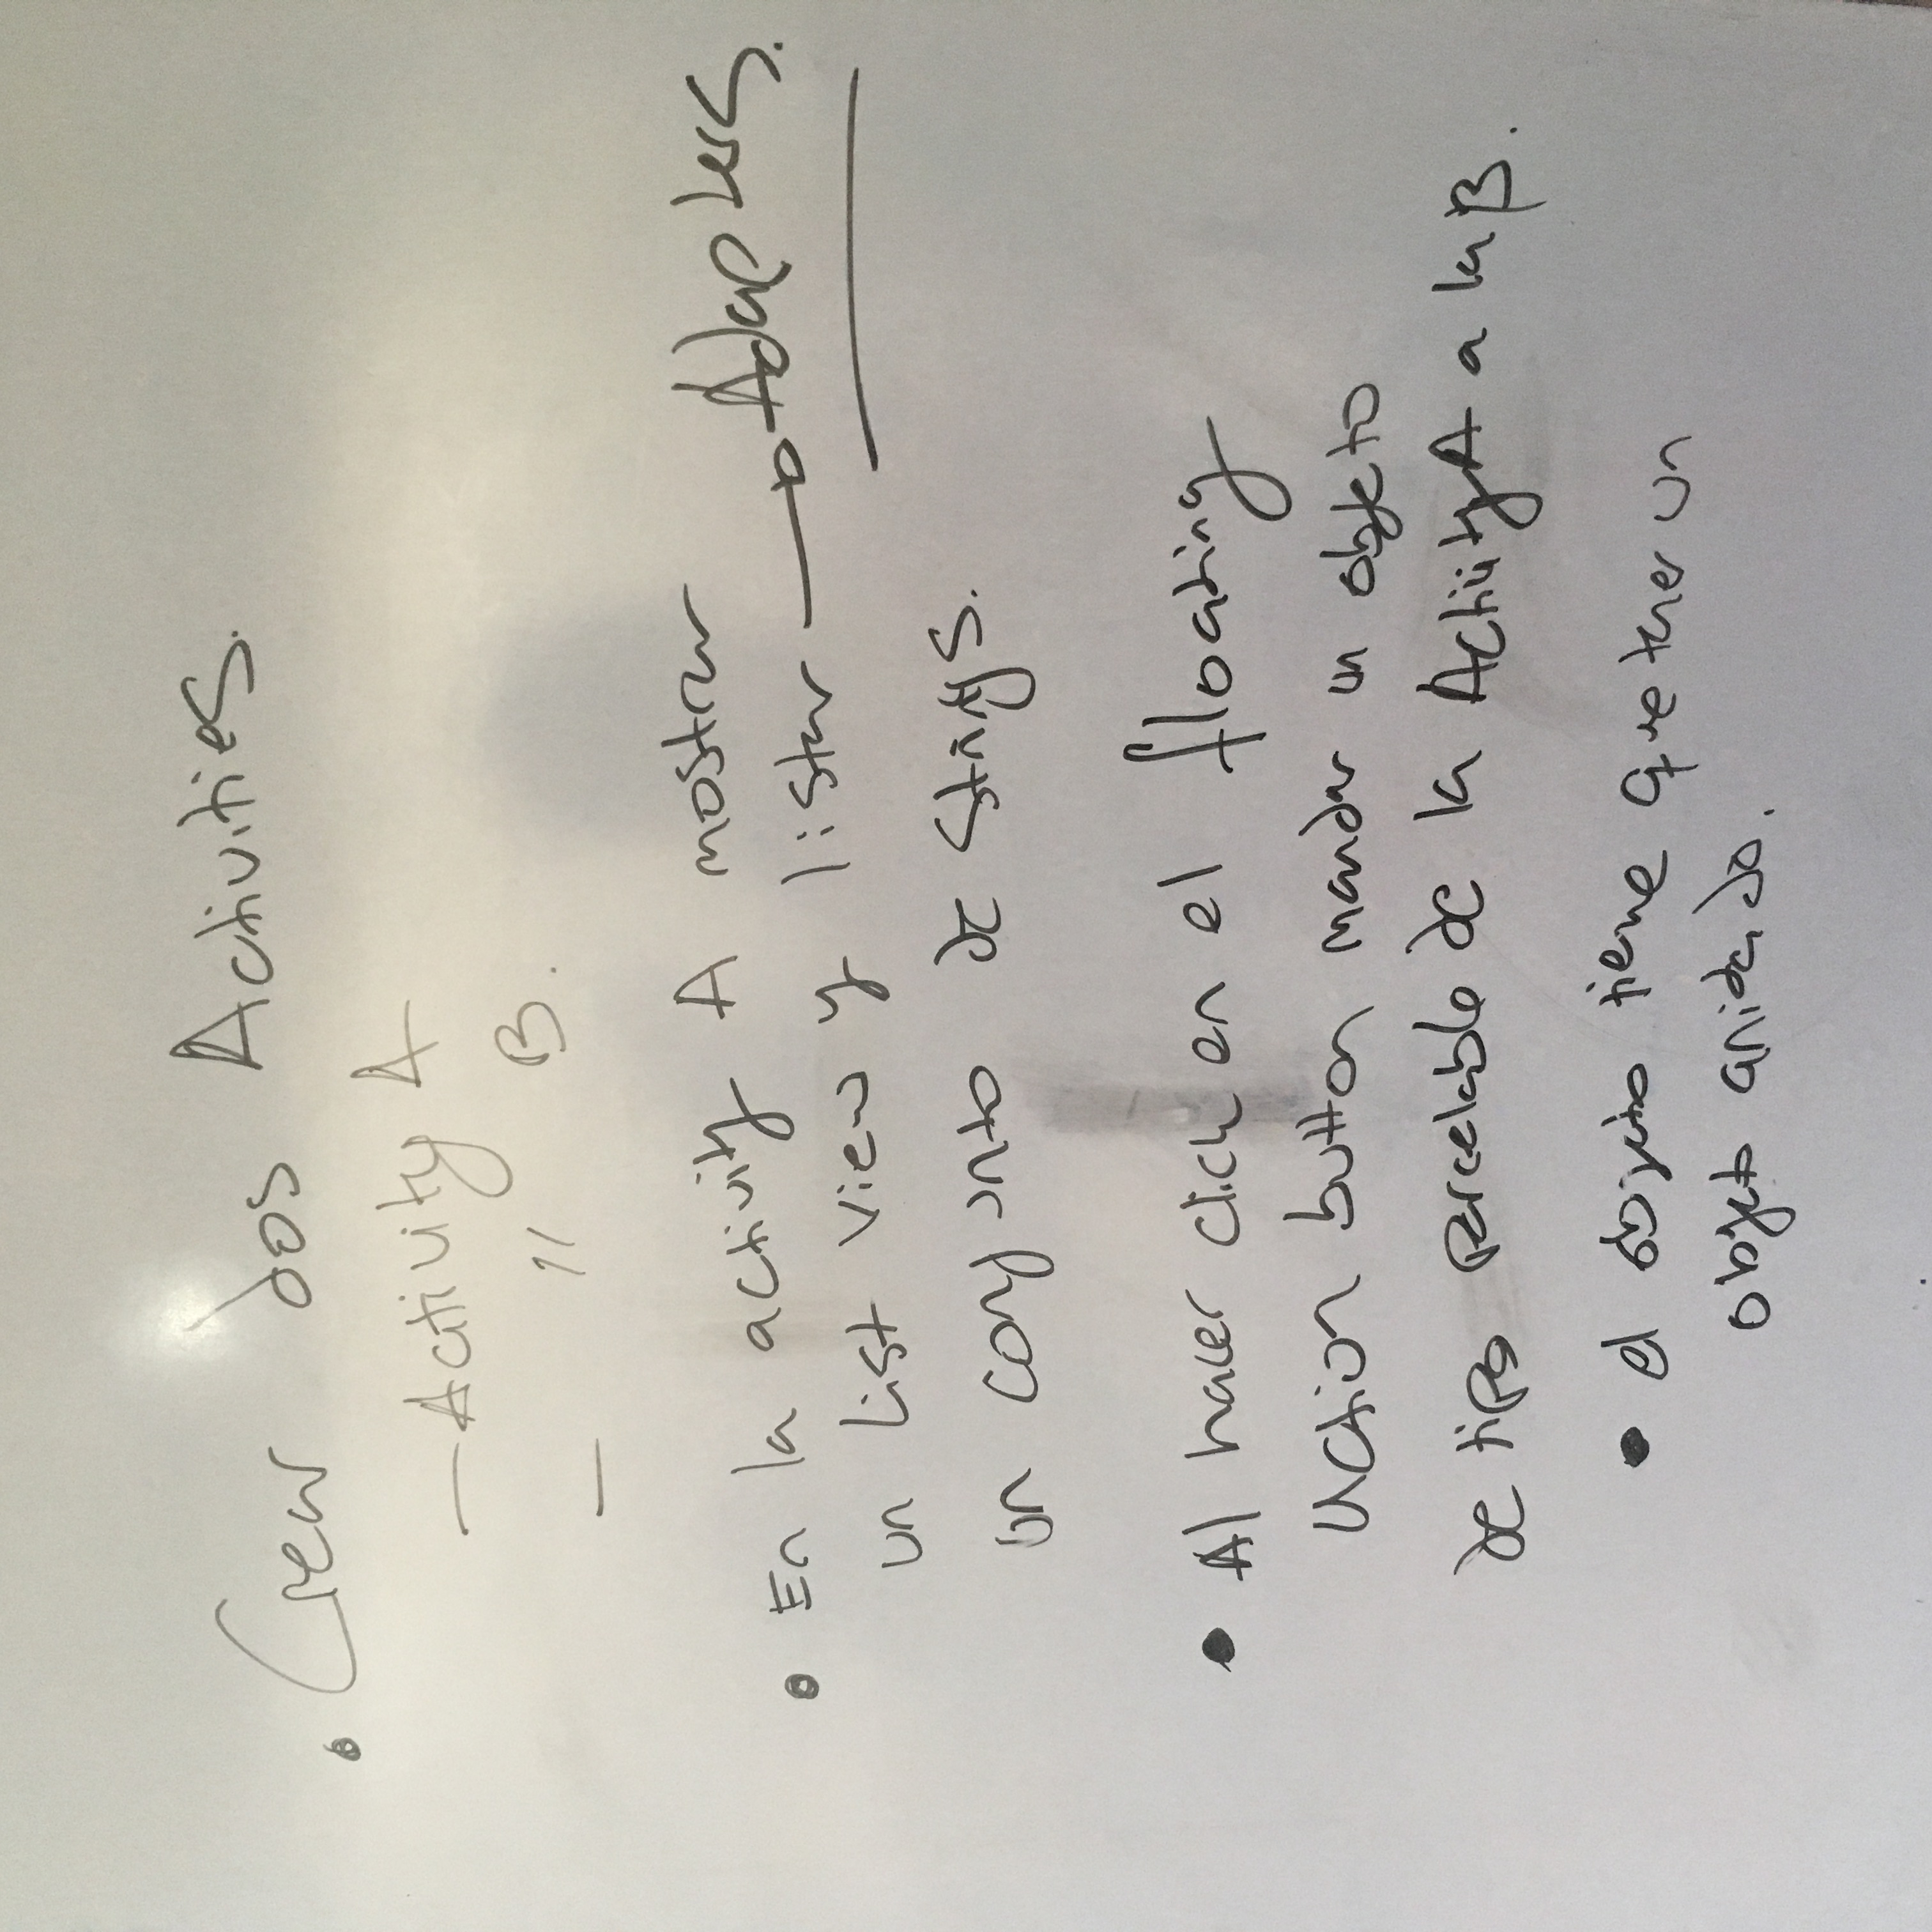 • Crear dos Activities.
— Activity A
— " B.
• En la activity A mostrar
un List View y listar → Adapters.
un conjunto de Strings.
• Al hacer click en el floating
action button mandar un objeto
de tipo parcelable de la Activity A a la B.
• el objeto tiene que tener un
objeto anidado.